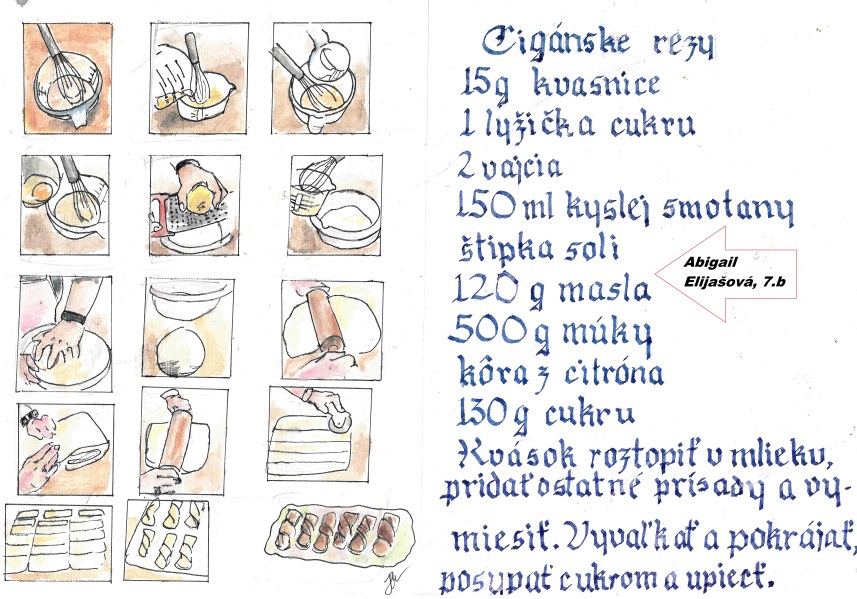 Cigánske rezy
15g kvasnice
1 lyžička cukru
2 vajcia
150 ml kyslej smotany
štipka soli
120 g masla
500 g múky
kôra z citróna
130 g cukru
Kvások roztopiť v mlieku,
pridať ostatné prísady a vy-
miesiť. Vyvaľkať a pokrájať,
posypať cukrom a upiecť.
Abigail
Elijašová, 7.b